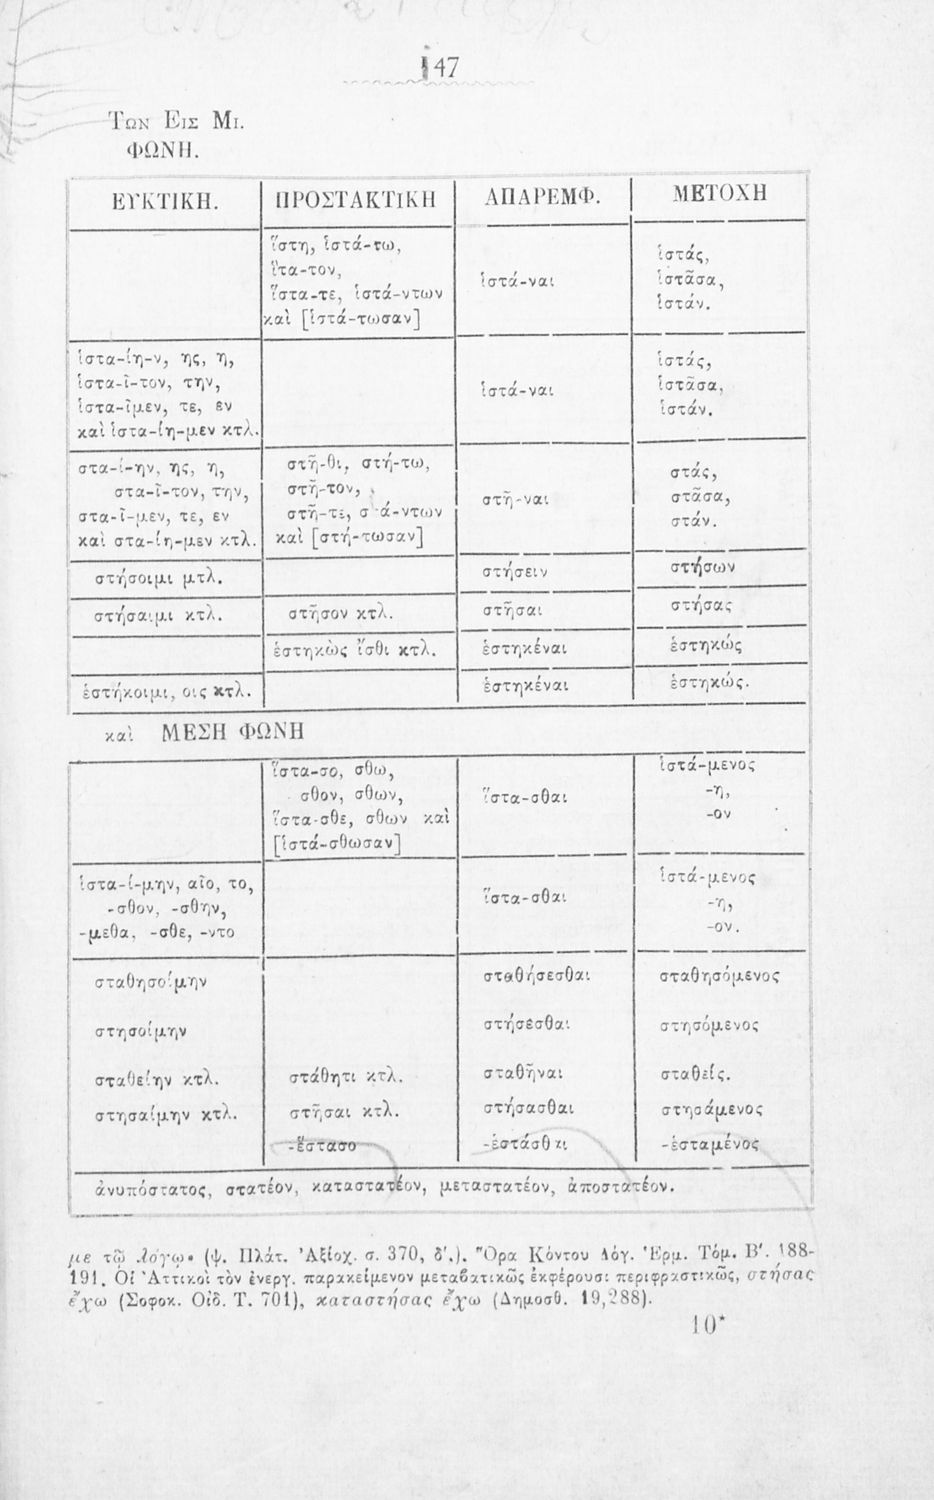 147
Των Εις Μι.
ΦΩΝΗ.
ΕΥΚΤΙΚΗ. ΠΡΟΣΤΑΚΤΙΚΗ ΑΠΑΡΕΜΦ. ΜΕΤΟΧΗ
ἵστη, ἱστά-τω,
ἵτα-τον,
ἵστα-τε, ἱστά-ντων
καὶ [ἱστά-τωσαν]
ἱστά-ναι
ἱστάς,
ἱστᾶσα,
ἱστάν.
ἱστα-ίη-ν, ης, η,
ἱστα-ῖ-τον, την,
ἱστα-ῖμεν, τε, εν
καὶ ἱστα-ίη-μεν κτλ.
ἱστά-ναι
ἱστάς,
ἱστᾶσα,
ἱστάν.
στα-ί-ην, ης, η,
στα-ῖ-τον, την,
στα-ῖ-μεν, τε, εν
καὶ στα-ίη-μεν κτλ.
στῆ-θι, στή-τω,
στῆ-τον,
στῆ-τε, σ ά-ντων
καὶ [στή-τωσαν]
στῆ-ναι
στάς,
στᾶσα,
στάν.
στήσοιμι μτλ. στήσειν στήσων
στήσαιμι κτλ. στῆσον κτλ. στῆσαι στήσας
ἑστηκὼς ἴσθι κτλ. ἑστηκέναι ἑστηκώς
ἑστήκοιμι, οις κτλ. ἑστηκέναι ἑστηκώς.
καὶ ΜΕΣΗ ΦΩΝΗ
ἵστα-σο, σθω,
σθον, σθων,
ἵστα-σθε, σθων καὶ
[ἱστά-σθωσαν]
ἵστα-σθαι
ἱστά-μενος
-η,
-ον
ἱστα-ί-μην, αῖο, το,
-σθον, -σθην,
-μεθα, -σθε, -ντο
ἵστα-σθαι
ἱστά-μενος
-η,
-ον.
σταθησοίμην σταθήσεσθαι σταθησόμενος
στησοίμην στήσεσθαι στησόμενος
σταθείην κτλ. στάθητι κτλ. σταθῆναι σταθείς.
στησαίμην κτλ. στῆσαι κτλ. στήσασθαι στησάμενος
-ἕστασο -ἑστάσθαι -ἑσταμένος
ἀνυπόστατος, στατέον, καταστατέον, μεταστατέον, ἀποστατέον.
με τῷ λόγῳ» (ψ. Πλάτ. Ἀξίοχ. σ. 370, δ'.). Ὅρα Κόντου Λόγ. Ἑρμ. Τόμ. Β'. 188-
191. Οἱ Ἀττικοὶ τὸν ἐνεργ. παρακείμενον μεταβατικῶς ἐκφέρουσι περιφραστικῶς, στήσας
ἔχω (Σοφοκ. Οἰδ. Τ. 701), καταστήσας ἔχω (Δημοσθ. 19,288).
10*